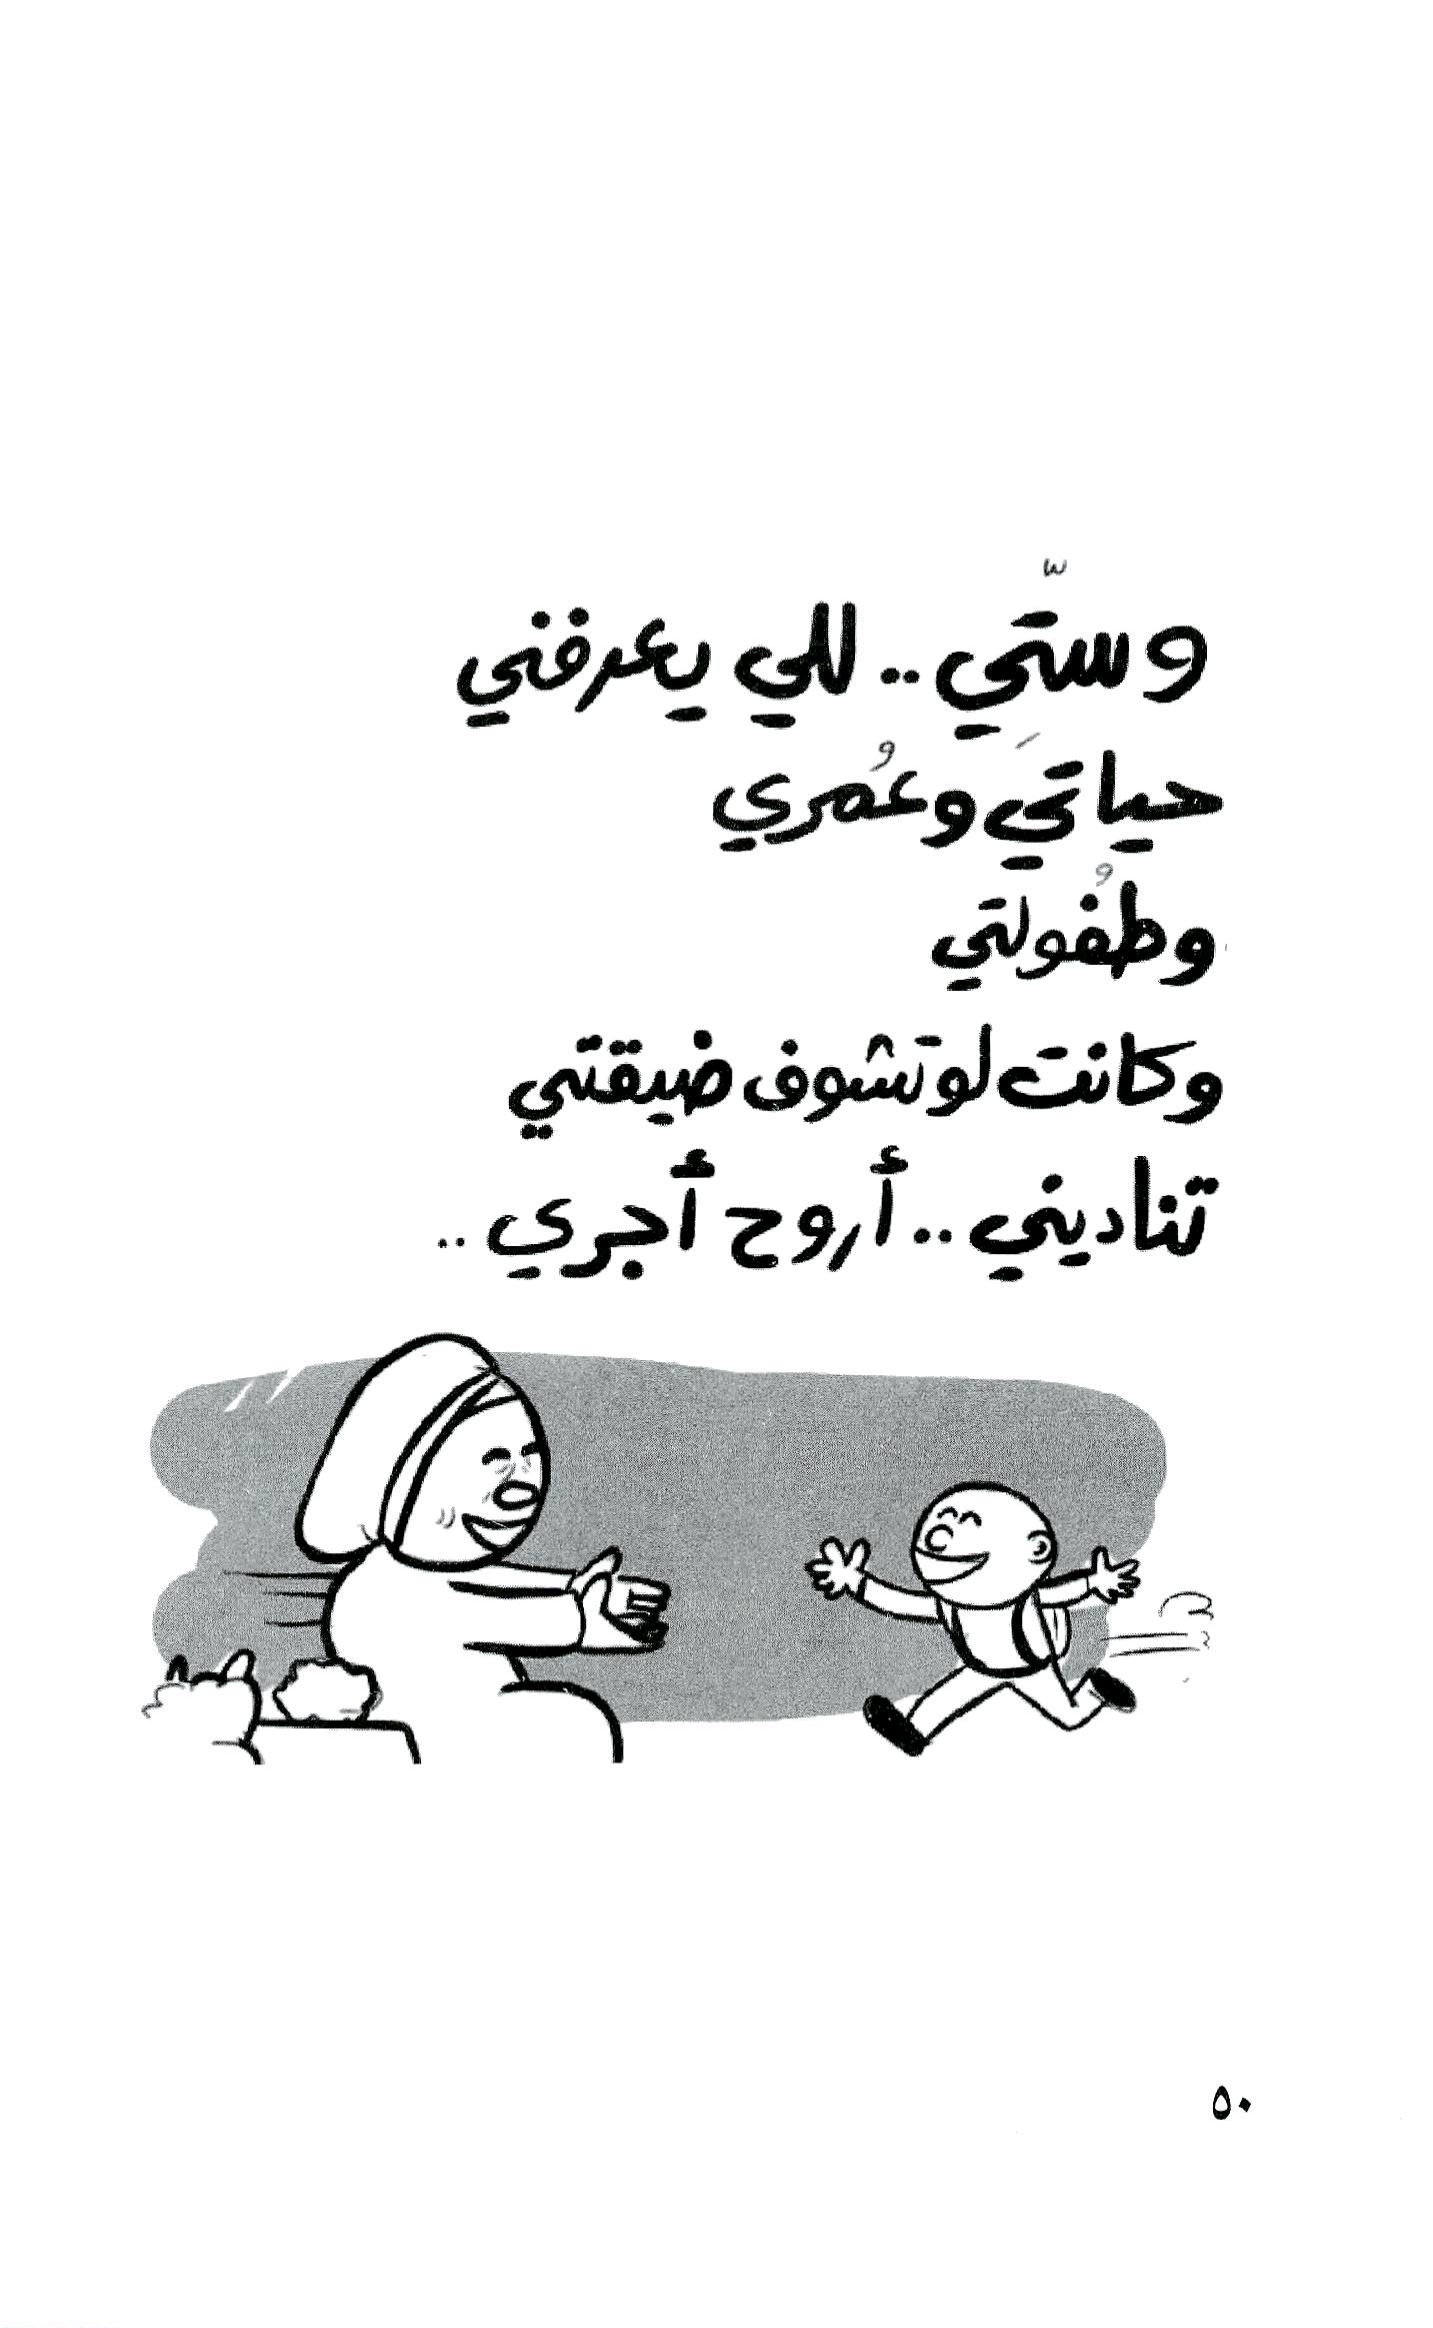 وستّي .. للي يعرفني
حياتيَ وعُمري
وطفُولتي
وكانت لو تشوف ضيقتي
تناديني .. أروح أجري ..
٥٠